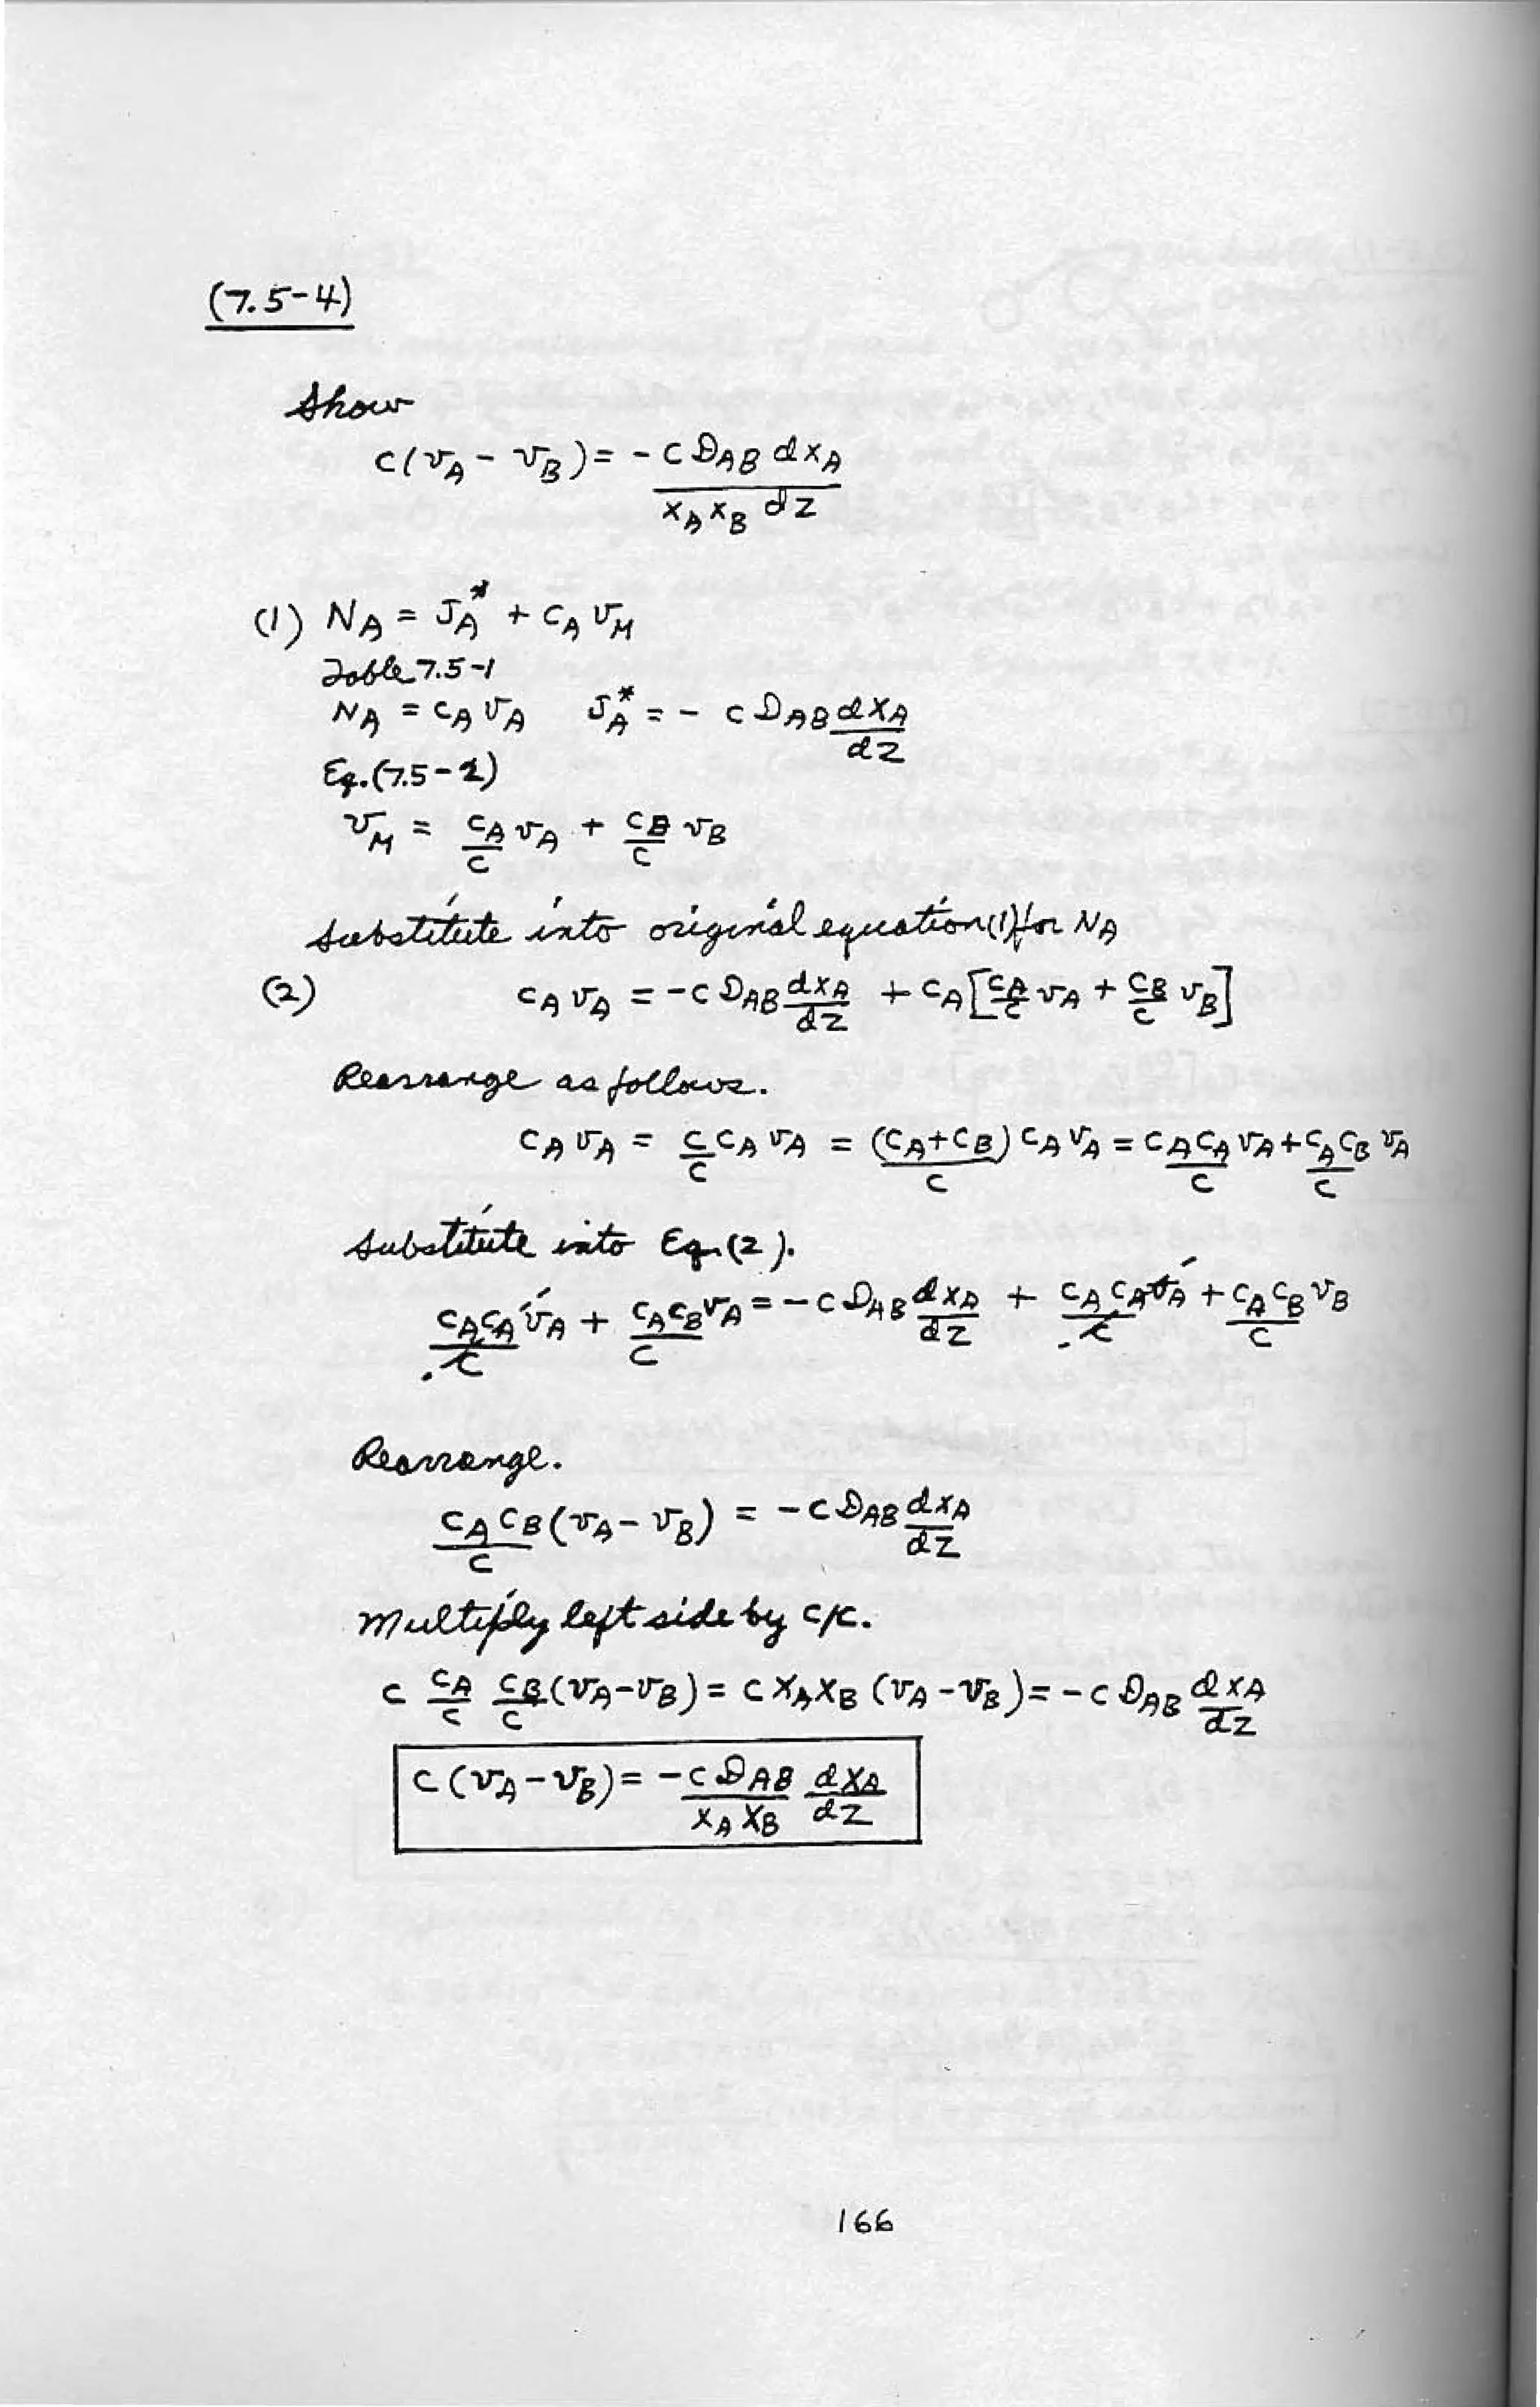 (7.5-4)
Show
c(v_A - v_B) = - c D_AB dx_A / x_A x_B dz
(1) N_A = J_A* + c_A v_M
Table 7.5-1
N_A = c_A v_A    J_A* = - c D_AB dx_A/dz
Eq. (7.5-2)
v_M = c_A/c v_A + c_B/c v_B
Substitute into original equation (1) for N_A
(2) c_A v_A = - c D_AB dx_A/dz + c_A [c_A/c v_A + c_B/c v_B]
Rearrange as follows.
c_A v_A = c/c c_A v_A = (c_A + c_B)/c c_A v_A = c_A c_A/c v_A + c_A c_B/c v_A
Substitute into Eq. (2).
c_A c_A/c v_A + c_A c_B/c v_A = - c D_AB dx_A/dz + c_A c_A/c v_A + c_A c_B/c v_B
Rearrange.
c_A c_B/c (v_A - v_B) = - c D_AB dx_A/dz
Multiply left side by c/c.
c c_A/c c_B/c (v_A - v_B) = c x_A x_B (v_A - v_B) = - c D_AB dx_A/dz
c (v_A - v_B) = - c D_AB/x_A x_B dx_A/dz
166